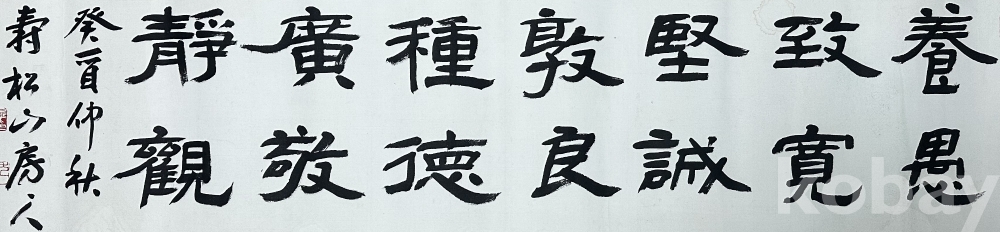 養愚
致寬
堅誠
敦良
種德
廣敬
靜觀
癸酉仲秋
壽松山房人
kobay